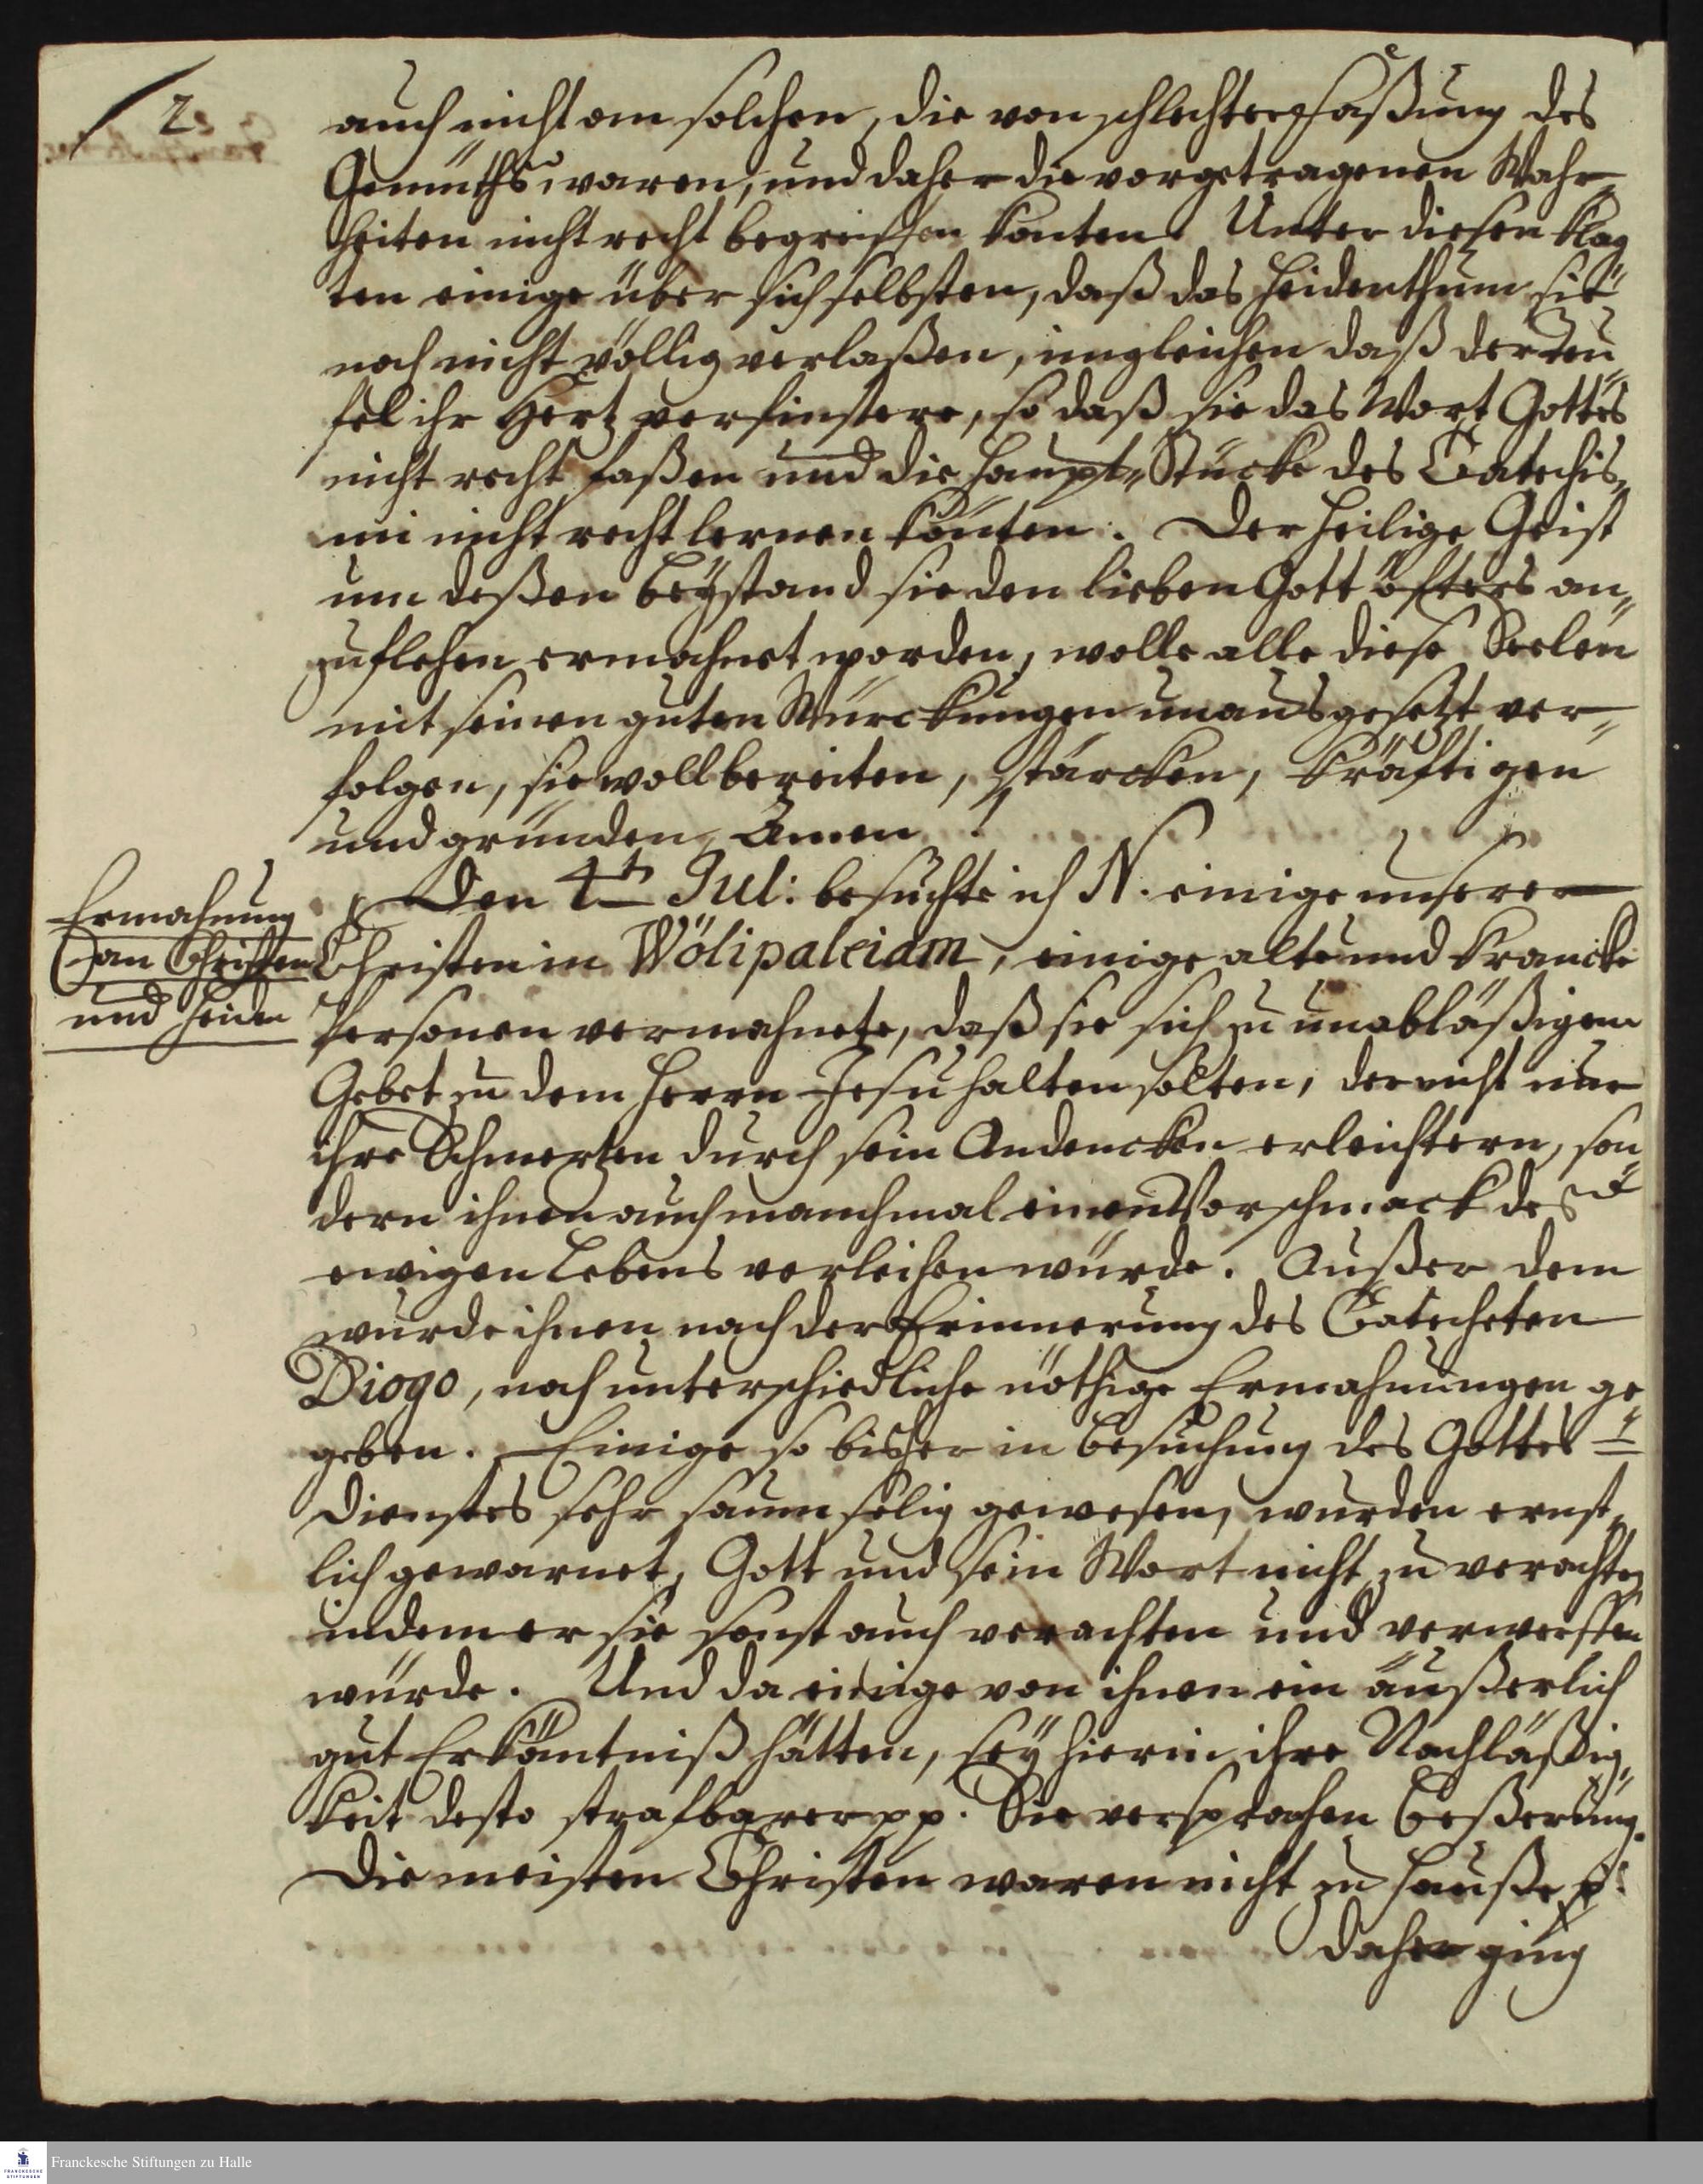 2.
auch nicht an solchen, die von schlechter Faßung des
Gemüths waren, und daher die vorgetragenen Wahr„
heiten nicht recht begreiffen konten. Unter diesen klag„
ten einige über sich selbsten, daß das Heidenthum sie
noch nicht völlig verlaßen, imgleichen daß der Teu„
fel ihr Hertz verfinstere, so daß sie das Wort Gottes
nicht recht faßen und die Haupt„Stücke des Catechis„
mi nicht recht lernen könten. Der heilige Geist
um deßen Beystand sie den lieben Gott öfters an„
zuflehen ermahnet worden, wolle alle diese Seelen
mit seinen guten Würckungen unausgesetzt ver„
folgen, sie vollbereiten, stärcken, kräftigen
und gründen, Amen!
Ermahnung
an Christen
und Heiden
Den 4t Jul: besuchte ich N. einige unserer
Christen in Wölipaleiam, einige alte und krancke
Personen vermahnete, daß sie sich zu unabläßigem
Gebet zu dem Herrn Jesu halten solten, der nicht nur
ihre Schmertzen durch sein Andencken erleichtern, son„
dern ihnen auch manchmal einen Vorschmack des
ewigen Lebens verleihen würde. Außer dem
wurde ihnen nach der Erinnerung des Catecheten
Diogo, noch unterschiedliche nöthige Ermahnungen ge„
geben. Einige so bisher in Besuchung des Gottes„
dienstes sehr saumselig gewesen, wurden ernst„
lich gewarnet, Gott und sein Wort nicht zu verachten
indem er sie sonst auch verachten und verwerffen
würde. Und da einige von ihnen ein äußerlich
gut Erkäntniß hätten, sey hierin ihre Nachläßig„
keit desto strafbarer pp. Sie versprachen Beßerung.
Die meisten Christen waren nicht zu Hauße p.
daher ging
Franckesche Stiftungen zu Halle
FRANCKESCHE
STIFTUNGEN